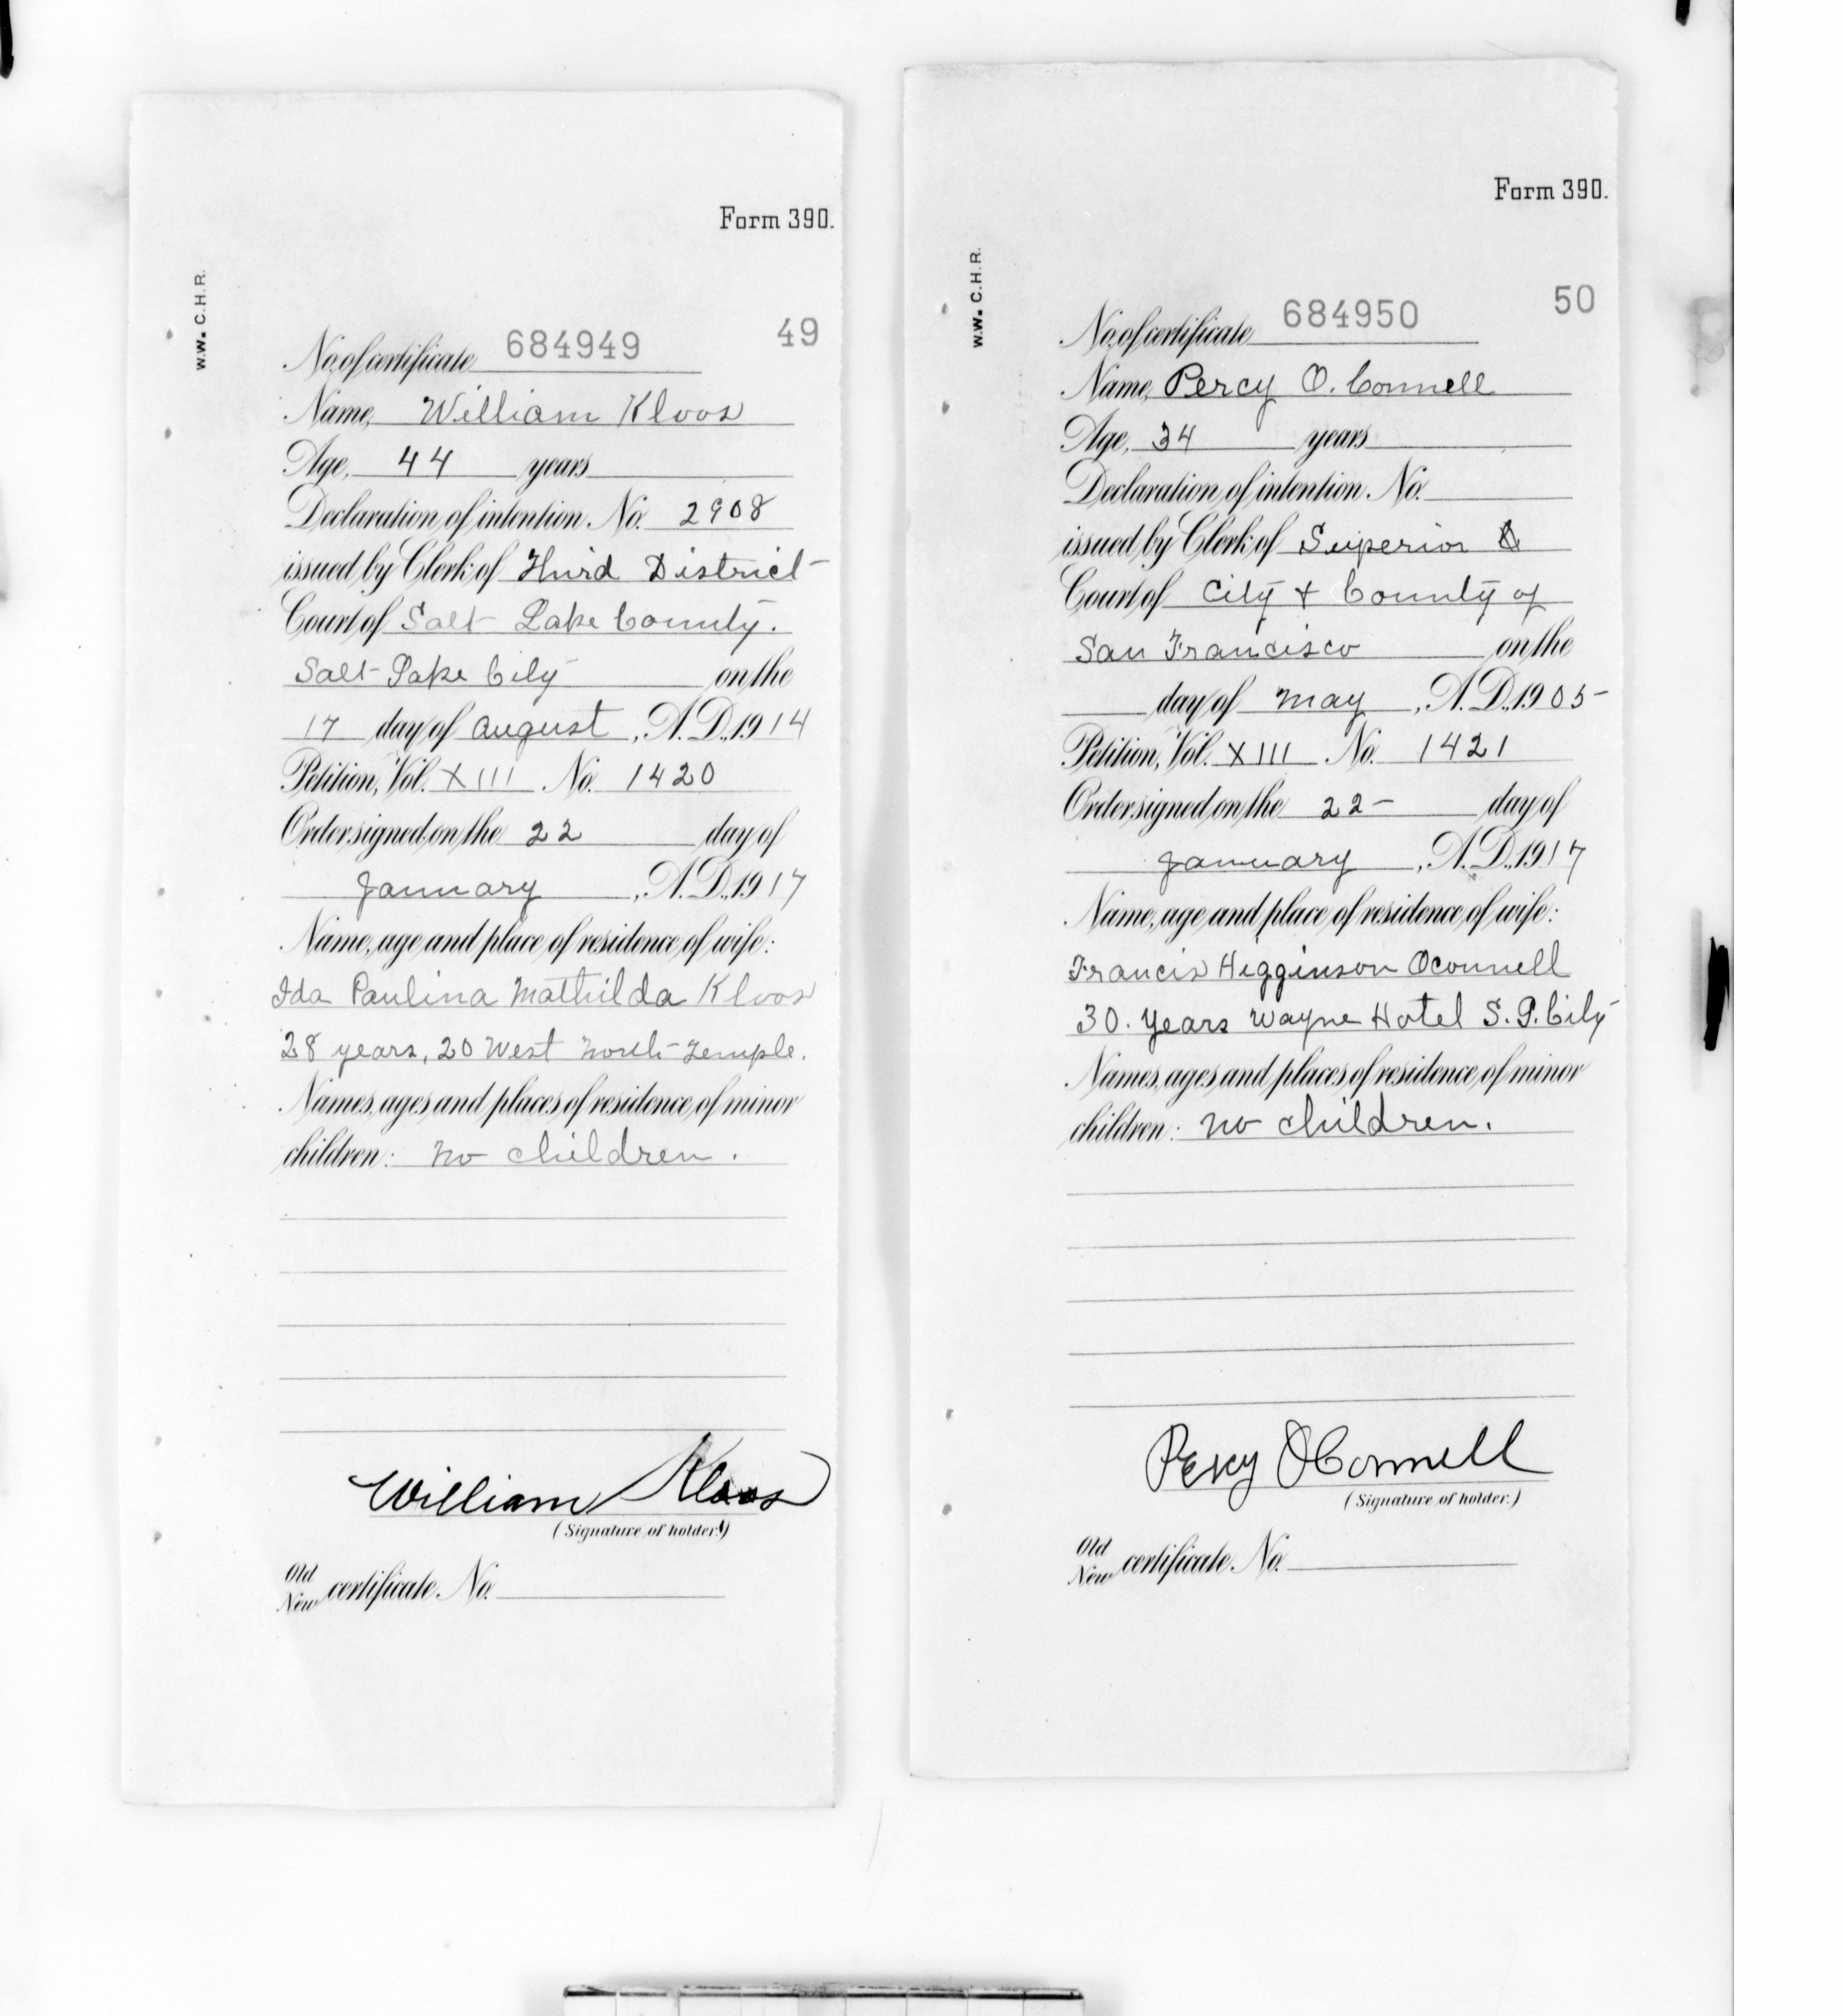 Form 390.
W.W. C.H.R.
49
No. of certificate 684949
Name, William Kloos
Age, 44 years
Declaration of intention No. 2908
issued by Clerk of Third District
Court of Salt Lake County.
Salt Lake City on the
17 day of August, A.D. 1914
Petition, Vol. XIII No. 1420
Order signed on the 22 day of
January, A.D. 1917
Name, age and place of residence of wife:
Ida Paulina Mathilda Kloos
28 years, 20 West North Temple.
Names, ages and places of residence of minor
children: no children.
William Kloos
(Signature of holder.)
Old
New certificate No.
Form 390.
W.W. C.H.R.
50
No. of certificate 684950
Name, Percy O. Connell
Age, 34 years
Declaration of intention No.
issued by Clerk of Superior
Court of City & County of
San Francisco on the
day of May, A.D. 1905-
Petition, Vol. XIII No. 1421
Order signed on the 22- day of
January, A.D. 1917
Name, age and place of residence of wife:
Francis Higginson Oconnell
30. years Wayne Hotel S.L. City
Names, ages and places of residence of minor
children: no children.
Percy OConnell
(Signature of holder.)
Old
New certificate No.